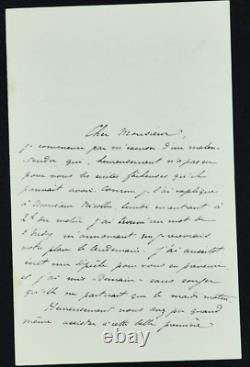 Cher Monsieur,
je commence par m'excuser d'un malen-
tendu qui, heureusement n'a pas eu
pour vous les suites fâcheuses qu'il
pouvait avoir. Comme je l'ai expliqué
à Monsieur en rentrant à
2h du matin j'ai trouvé un mot de
d'Indy m'annonçant qu'
votre place le lendemain. J'ai aussitôt
écrit une dépêche pour vous en prévenir
et j'ai mis "demain" sans songer
qu'elle ne partirait que le mardi matin.
Heureusement vous avez pu quand
même assister à cette belle première